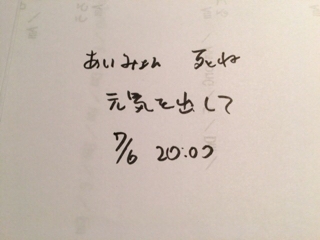 あいみょん
元気を出して
7/6 20:00